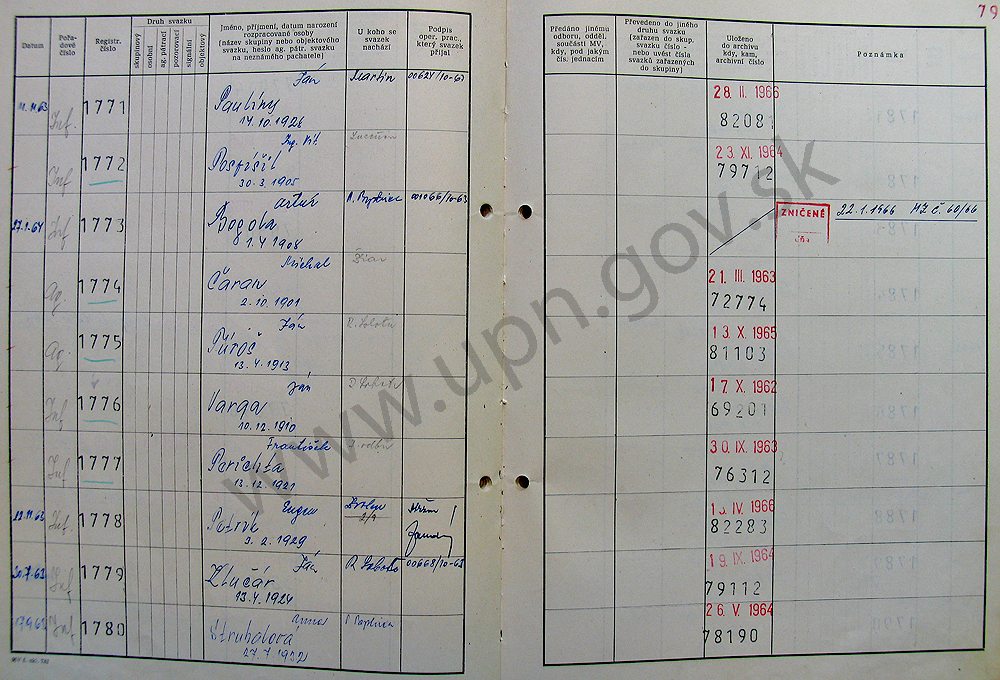 79
Datum
Pořadové číslo
Registr. číslo
Druh svazku
skupinový
osobní
ag. pátrací
pozorovací
signální
objektový
Jméno, příjmení, datum narození
rozpracované osoby
(název skupiny nebo objektového
svazku, heslo ag. pátr. svazku
na neznámého pachatele)
U koho se
svazek
nachází
Podpis
oper. prac.,
který svazek
přijal
Předáno jinému
odboru, odděl.
součásti MV,
kdy, pod jakým
čís. jednacím
Převedeno do jiného
druhu svazku
(zařazen do skup.
svazku číslo -
nebo uvést čísla
svazků zařazených
do skupiny)
Uloženo
do archivu
kdy, kam,
archivní číslo
Poznámka
Inf. 1771 Ján Martin 00624/10-63
Pauliny
14.10.1926
28. II. 1966
82081
Inf 1772 Ing. Vít.
Pospíšil
30.3.1905
23. XI. 1964
79712
27.1.64 Inf 1773 Artúr B. Bystrica 001066/10-63
Bogola
1.4.1908
ZNIČENÉ 22.1.1966
Ag. 1774 Michal
Čaran
2.10.1901
21. III. 1963
72774
Ag. 1775 Ján R. Sobota
Púroš
13.4.1913
13. X. 1965
81103
Inf 1776 Ján
Varga
10.12.1910
17. X. 1962
69201
Inf 1777 František
Perichta
13.12.1921
30. IX. 1963
76312
Inf. 1778 Eugen
Petrík
9.2.1929
IV. 1966
82283
30.7.63 Inf 1779 Ján R. Sobota 00668/10-63
Klučár
13.4.1924
19. IX. 1964
79112
Inf. 1780 Anna
Struhalová
27.7.1932
26. V. 1964
78190
www.upn.gov.sk